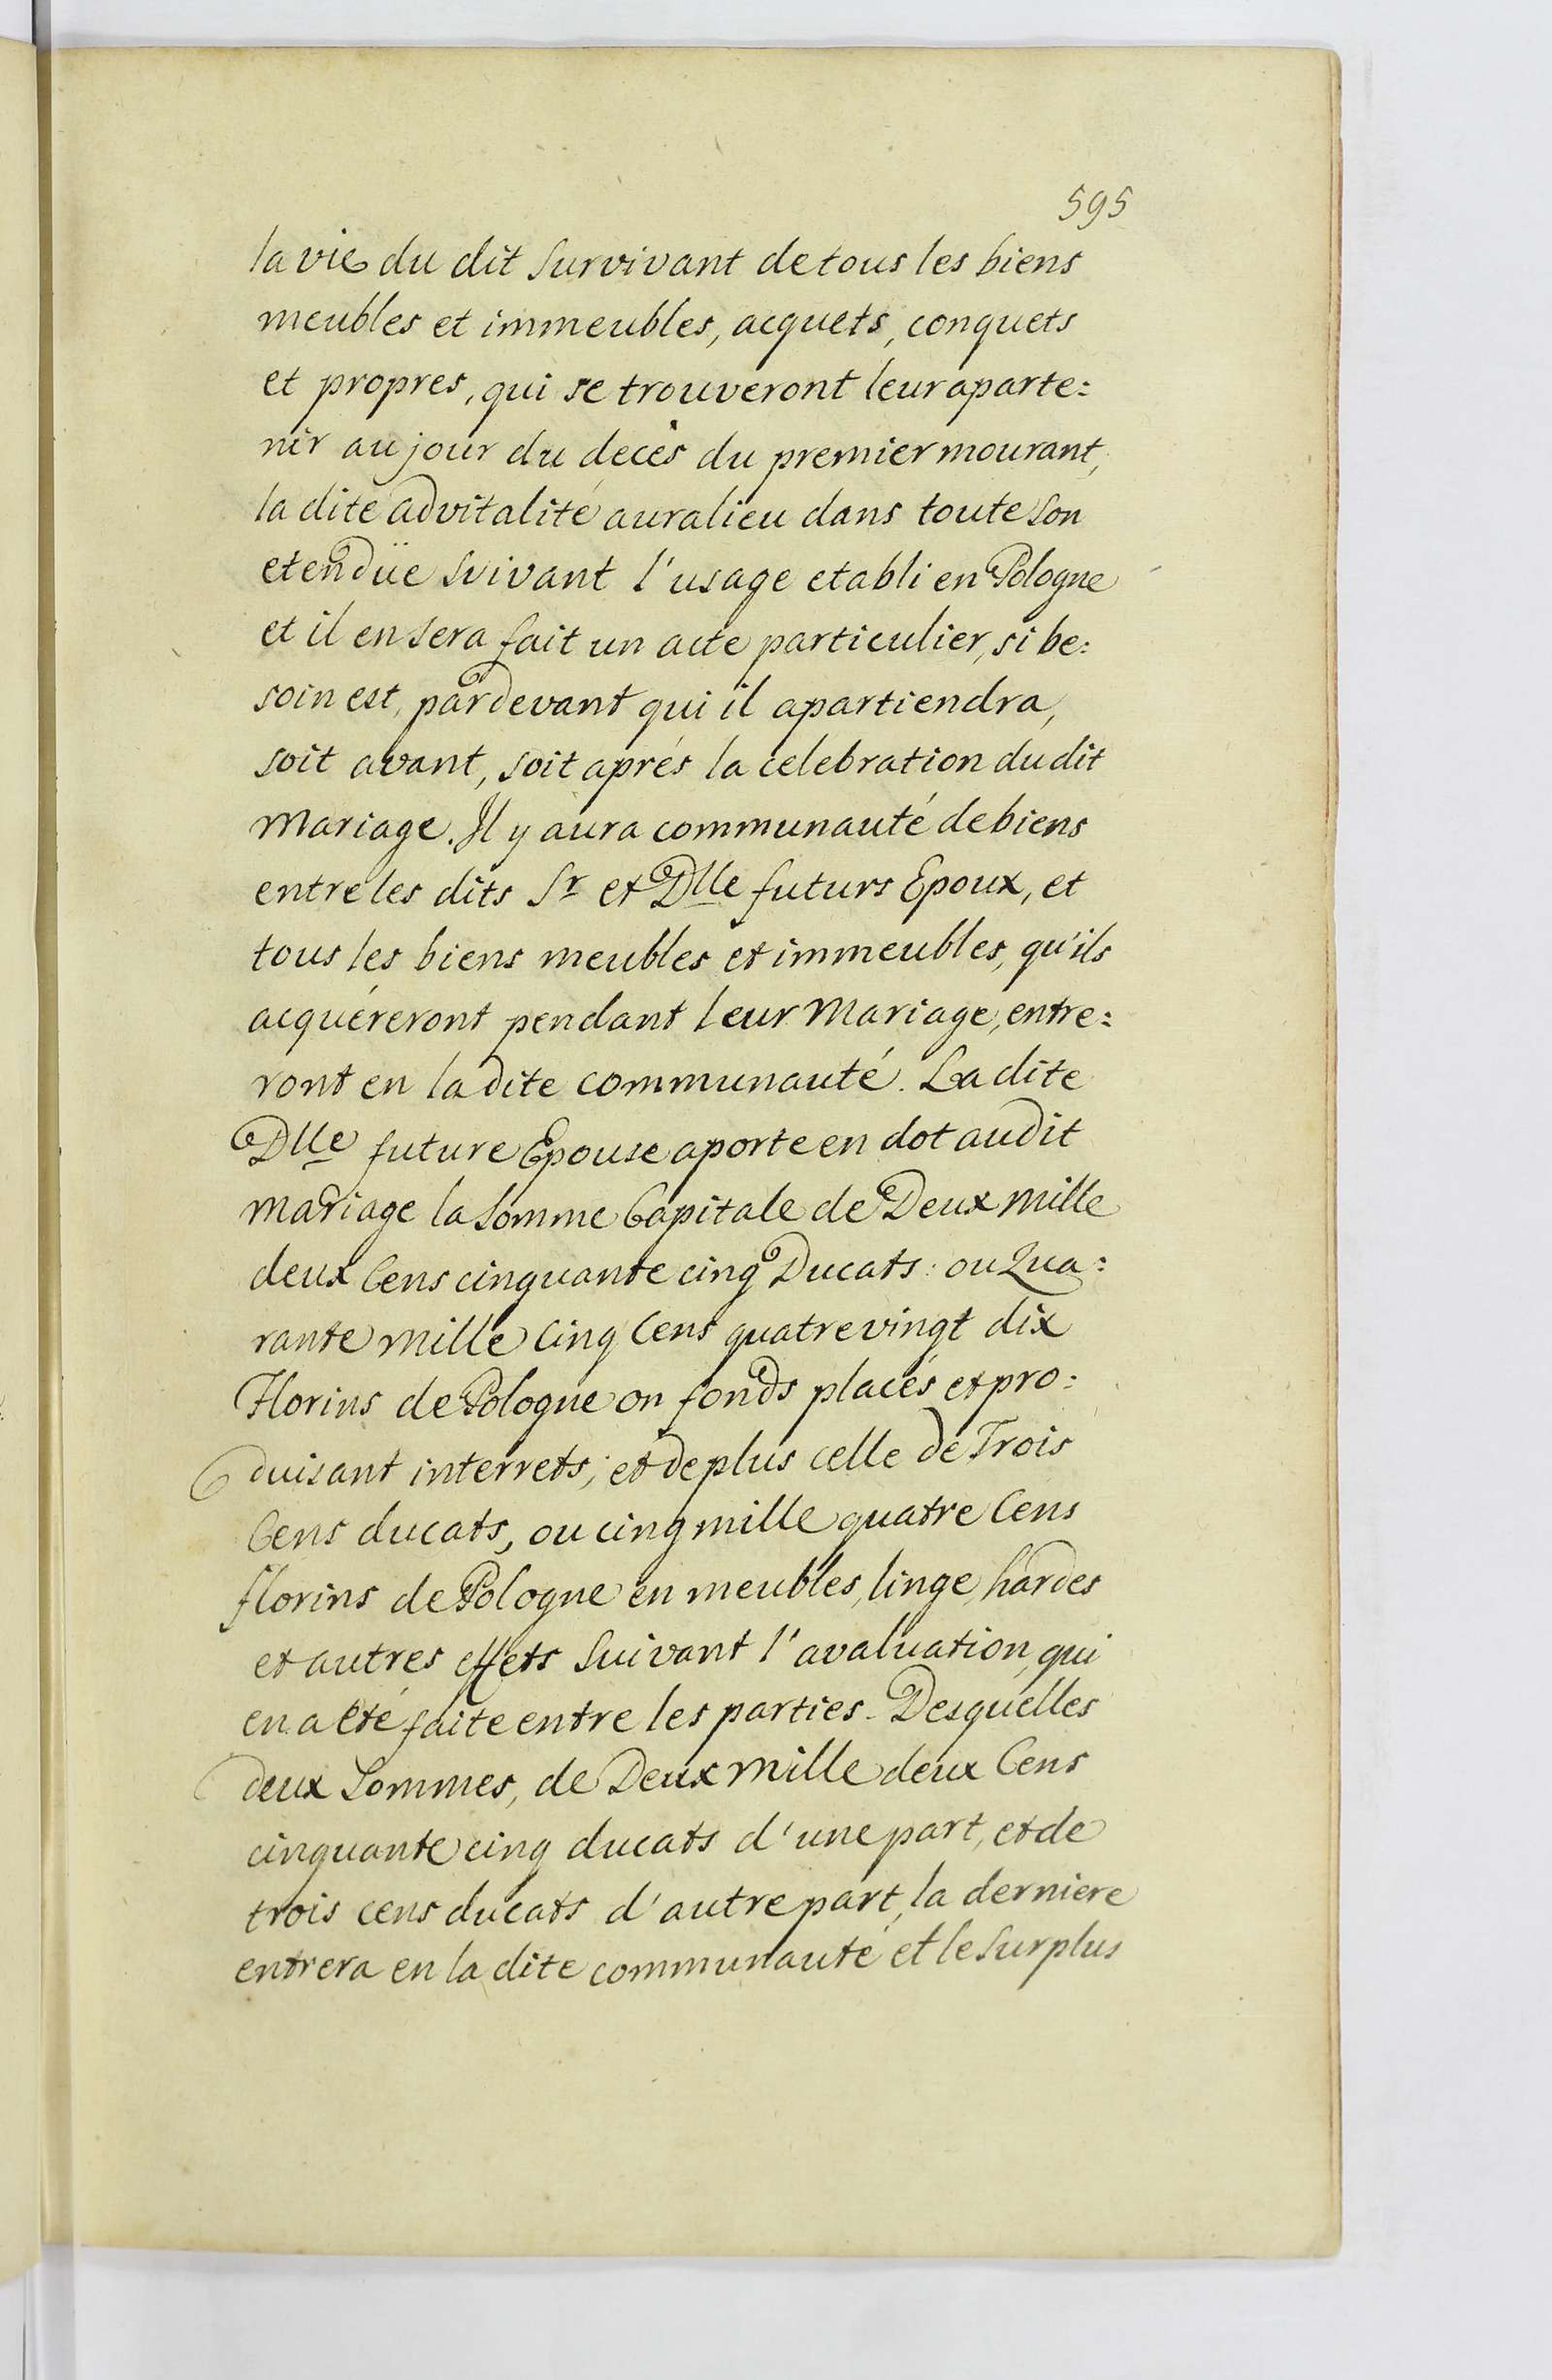 595
la vie du dit Survivant de tous les biens
meubles et immeubles, acquets, conquets
et propres, qui se trouveront leur aparte:
nir au jour du decès du premier mourant,
la dite advitalité aura lieu dans toute Son
etendüe Suivant l'usage etabli en Pologne
et il en Sera fait un acte particulier, si be:
soin est, pardevant qui il apartiendra,
soit avant, soit aprés la celebration du dit
Mariage. Il y aura communauté de biens
entre les dits Sr et Dlle futurs Epoux, et
tous les biens meubles et immeubles, qu'ils
acquéreront pendant leur Mariage, entre:
ront en la dite communauté. La dite
Dlle future Epouse aporte en dot audit
Mariage la Somme Capitale de Deux Mille
deux Cens cinquante cinq Ducats: ou Qua:
rante Mille Cinq Cens quatrevingt dix
Florins de Pologne on fonds placés et pro:
duisant interrets; et de plus celle de Trois
Cens ducats, ou cinq mille quatre Cens
florins de Pologne en meubles, linge, hardes
et autres effets Suivant l'avaluation, qui
en a eté faite entre les parties. Desquelles
deux Sommes, de Deux Mille deux Cens
cinquante cinq ducats d'une part, et de
trois cens ducats d'autre part, la derniere
entrera en la dite communauté et le Surplus